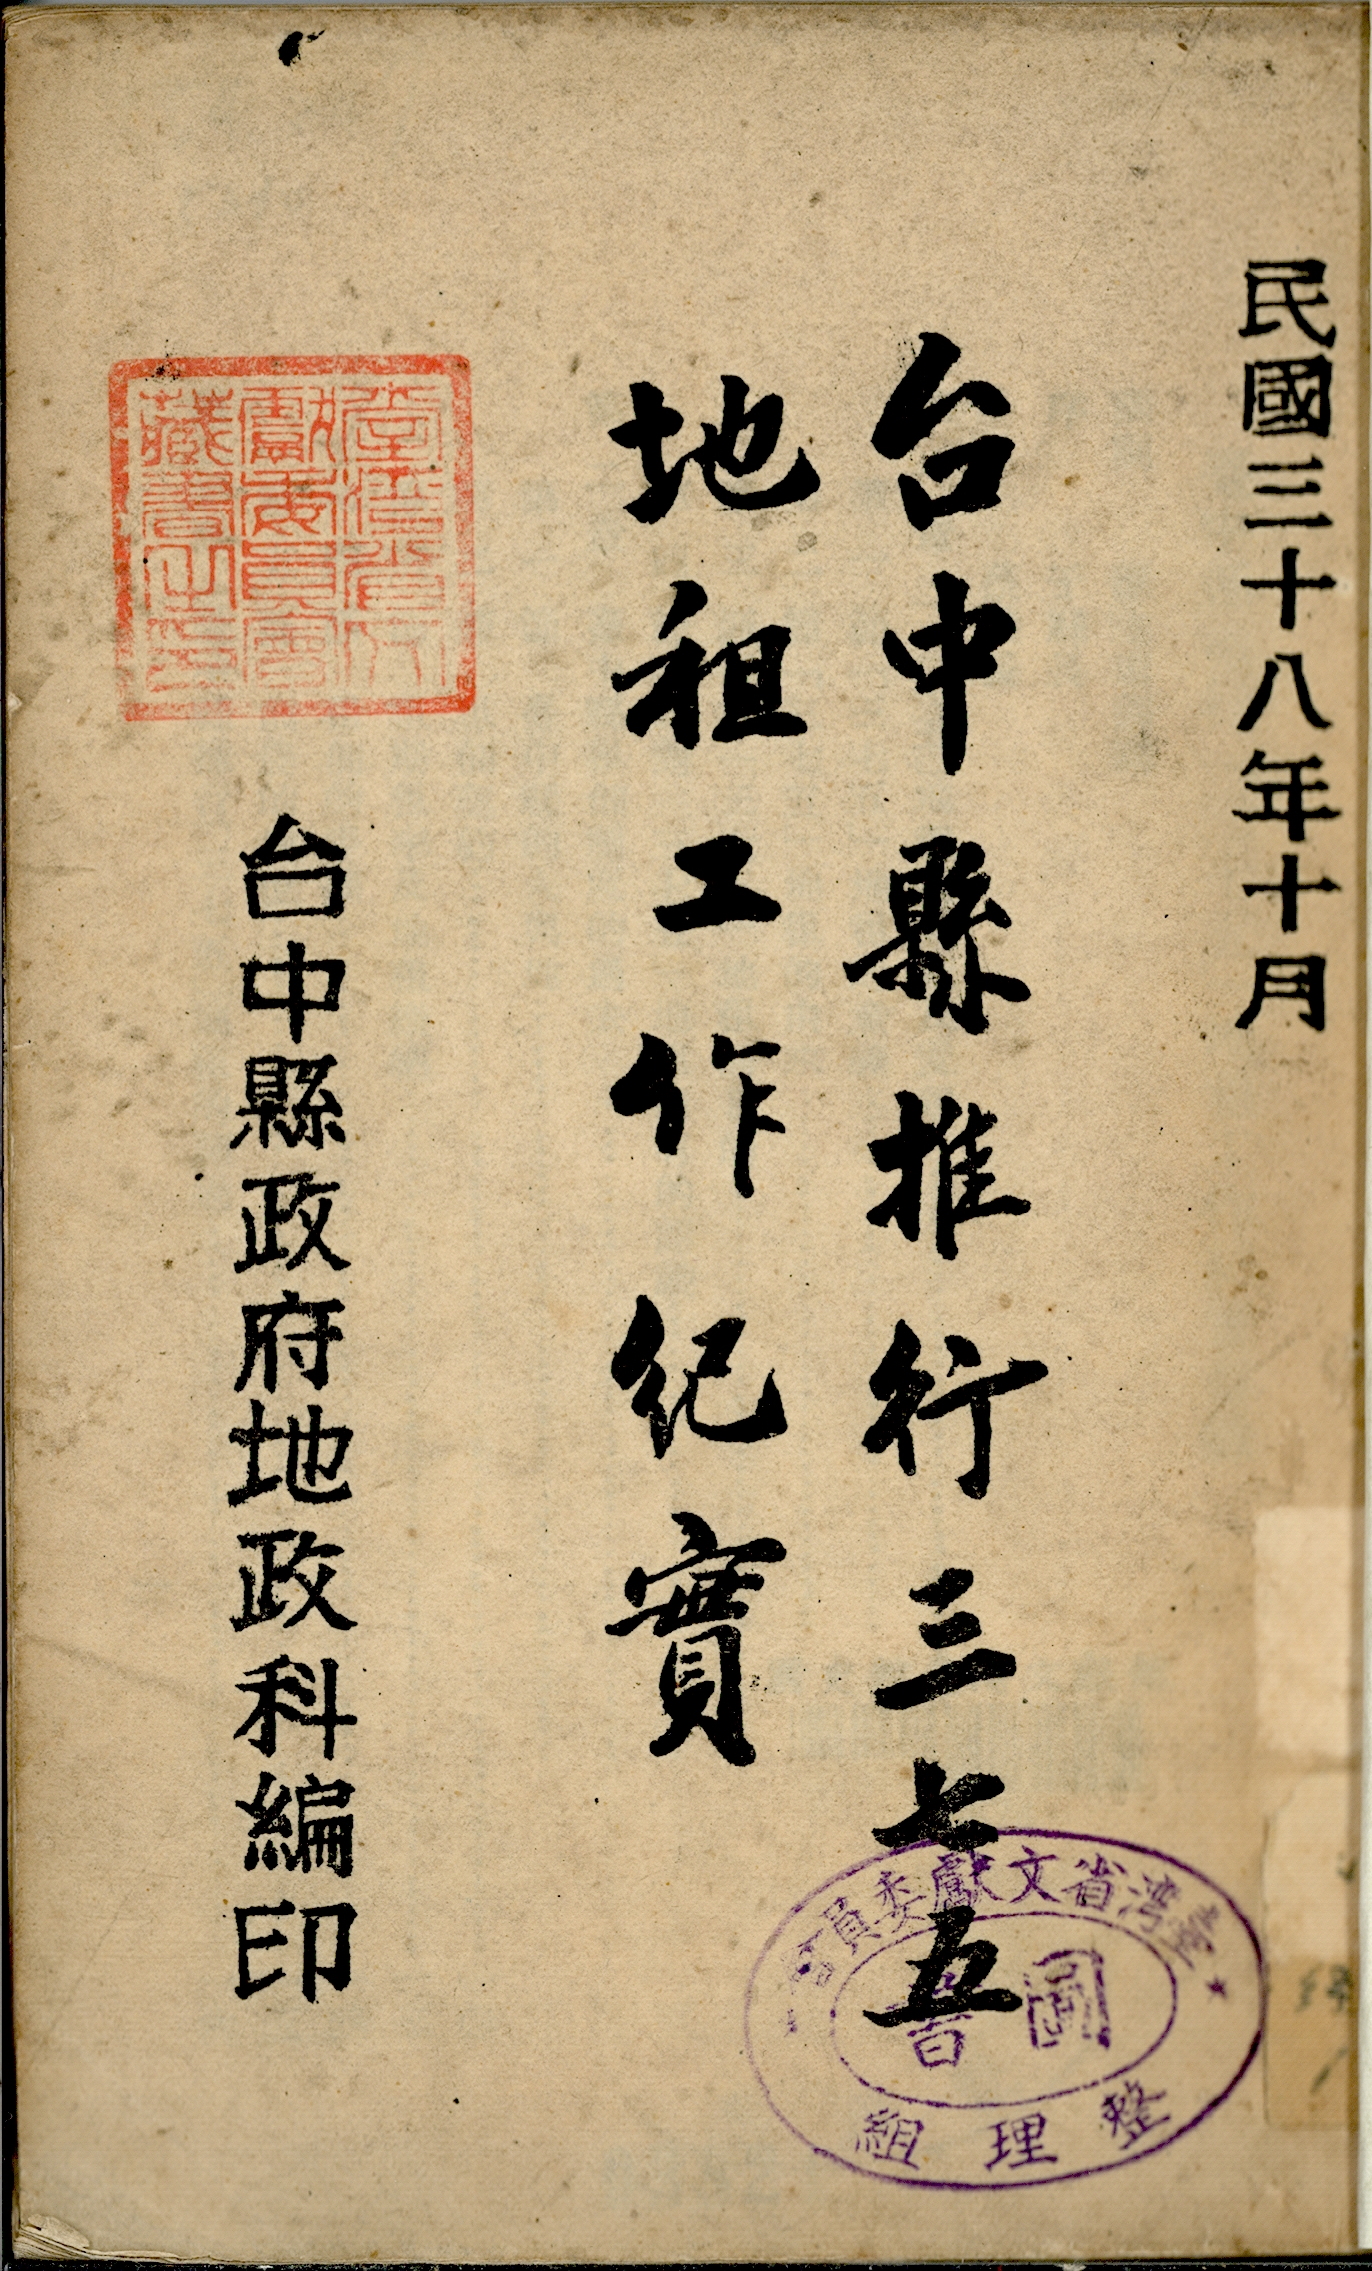 民國三十八年十月
台中縣推行三七五
地租工作紀實
台中縣政府地政科編印
臺灣省文
獻委員會
藏書之印
臺灣省文獻委員會
圖書
整理組